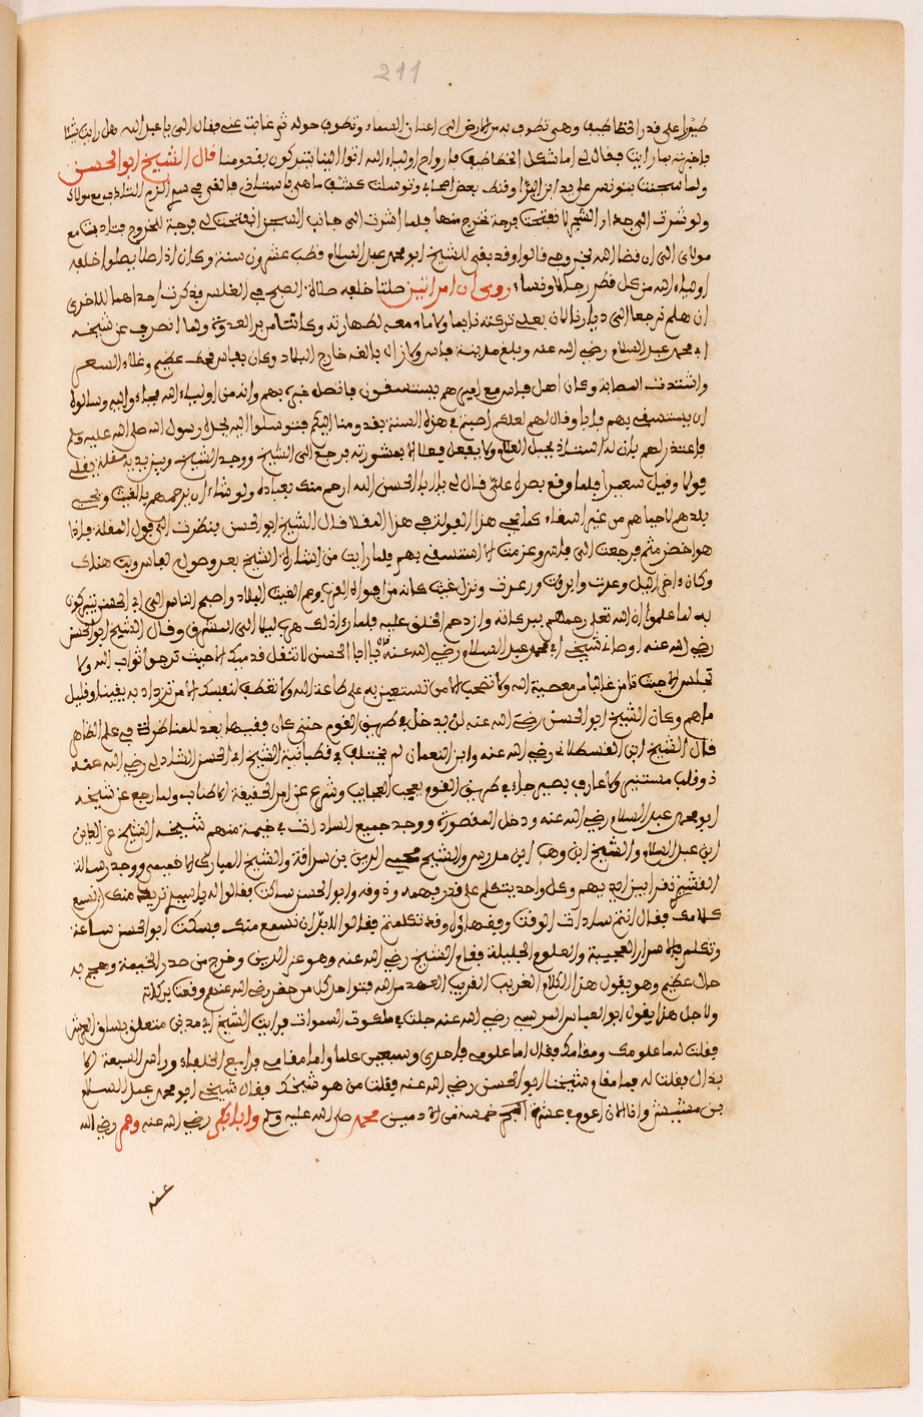 211
طيورا على قدر الخطاطيف وهي تطوف به من الارض الى اعنان السماء وتطوف حوله ثم غابت عني فقال الي يا عبد الله هل رايت شيئا
فاخبرته بما رايت فقال لي اما شكل الخطاطيف فارواح اولياء الله اتوا الينا يتبركون بقدومنا قال الشيخ ابو الحسن
ولما سجنت بتونس على يد ابن البرا وفتك بعض
ولو شرت الى هذا الشجر لا نفتحت فرجة نخرج منها فلما اشرت الى جانب السجن انفتحت لي فرجة للخروج فتادبت مع
مولاي الى ان قضا الله بخروجي قالوا وقد بقي للشيخ ابو محمد عبد السلام قطب عشرون سنة وكان اذا صلا يصلوا خلفه
اولياء الله من كل قطر رجالا ونساء روي ان امراتين صلتا خلفه صلاة الصبح في الغلس فذكرت احداهما للاخرى
ان هلم نرجعا الى ديارنا لان بعلي تركته نايما ولا ماء معه لطهارته وكانتا من بر العدوة ولما انصرف عن شيخه
ابي محمد عبد السلام رضي الله عنه وبلغ مدينة فاس ولا زال بالفه خارج البلاد وكان بفاس قحط عظيم وغلاء السعر
واشتدت المصابة وكان اهل فاس مع اميرهم يستسقون فاتصل خبره بهم وانه من اولياء الله فجاءوا اليه وسالوه
ان يستسقي بهم فابا وقال لهم لعلكم اصبتم في هذه السنة بقدومنا اليكم فتوسلوا اليه بجاه رسول الله صلى الله عليه وسلم
فاعتذر لهم بان له استاذ بجبل العلم ولا يفعل فعلا الا بمشورته فرجع الى الشيخ ووجد الشيخ وبين يديه مقلة يقلي
فولا وقيل شعيرا فلما وقع بصره علي قال لي يابا الحسن الله ارحم منك بعباده ولو شاء ان يرحمهم بالغيث ويحيي
بلدهم لاحياهم من غير استسقاء كما يحي هذا الفول في هذا المقلا قال الشيخ ابو الحسن فنظرت الى فول المقلة فاذا
هو اخضر مثمر فرجعت الى فاس وعزمت الا استسقي بهم لما رايت من اشارة الشيخ بعد وصولي لفاس وبت هناك
وكان اخر الليل وعدت وابرقت ورعدت ونزل غيث كانه من افواه القرب وعم الغيث البلاد واصبح الناس الى ابي الحسن يتبركون
به لما علموا ان الله تعلى رحمهم ببركاته وازدحم الخلق عليه فلما راى ذلك هرب ليلا الى المشرق وقال الشيخ ابو الحسن
رضي الله عنه اوصاني شيخي ابي محمد عبد السلام رضي الله عنه قال يابا الحسن لا تنقل قدميك الا حيث ترجوا ثواب الله ولا
تجلس الا حيث تامن غالبا من معصية الله ولا تصحب الا من تستعين به على طاعة الله ولا تصطف لنفسك الا من تزداد به يقينا وقليل
ما هم وكان الشيخ ابو الحسن رضي الله عنه لم يدخل في طريق القوم حتى كان فقيها يعد للمناظرة في علم الظاهر
قال الشيخ ابن القسطلاني رضي الله عنه وابن النعمان لم يختلف في قطبانية الشيخ ابي الحسن الشاذلي رضي الله عنه
ذو قلب مستنير ولا عارف بصير جاء في طريق القوم بعجب العجايب وشرع عن امر الحقيقة الاطناب ولما رجع عن شيخه
ابو محمد عبد السلام رضي الله عنه ودخل المقصورة ووجد جميع السادات في خيمة منهم شيخه الشيخ عز الدين
ابن عبد السلام والشيخ ابن وهب ابن مدرس والشيخ محيي الدين بن سراقة والشيخ المبارك الاخميمي ووجد رسالة
القشيري تقرا بين ايديهم وكل واحد يتكلم على قدر فهمه وذوقه وابو الحسن ساكت فقالوا له يا سيدي نريد منك ان نسمع
كلامك فقال انتم سادات الوقت وفقهاؤه وقد تكلمتم فقالوا لابد ان نسمع منك فسكت ابو الحسن ساعة
وتكلم بالاسرار العجيبة والعلوم الجليلة فقام الشيخ رضي الله عنه وهو عز الدين وخرج من صدر الخيمة وهو به
حال عظيم وهو يقول هذا الكلام الغريب القريب العهد من الله فتواجد كل من حضر رضي الله عنهم ونفعنا ببركاته
ولاجل هذا يقول ابو العباس المرسي رضي الله عنه جلت في ملكوت السموات فرايت الشيخ ابي مدين متعلق بساق العرش
فقلت له ما علومك وما مقامك فقال اما علومي فاحدى وسبعين علما واما مقامي فرابع الخلفاء وراس السبعة الا
بدال فقلت له فما مقام شيخنا ابو الحسن رضي الله عنه فقلت من هو شيخك فقال شيخي ابو محمد عبد السلام
بن مشيش وانا الان اعوم في عشرة ابحر خمسة من الادميين محمد صلى الله عليه وسلم وابا بكر رضي الله عنه وعمر رضي الله
عنه